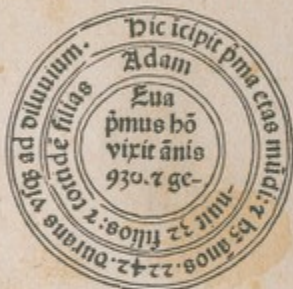 Hic īcipit p̄ma etas mūdi: ⁊ hꝫ ānos .2242. Durans vsqꝫ ad diluuium.
Adam
Eua
p̄mus hō
vixit ānis
930. ⁊ ge-
-nuit 32 filios: ⁊ totidē filias